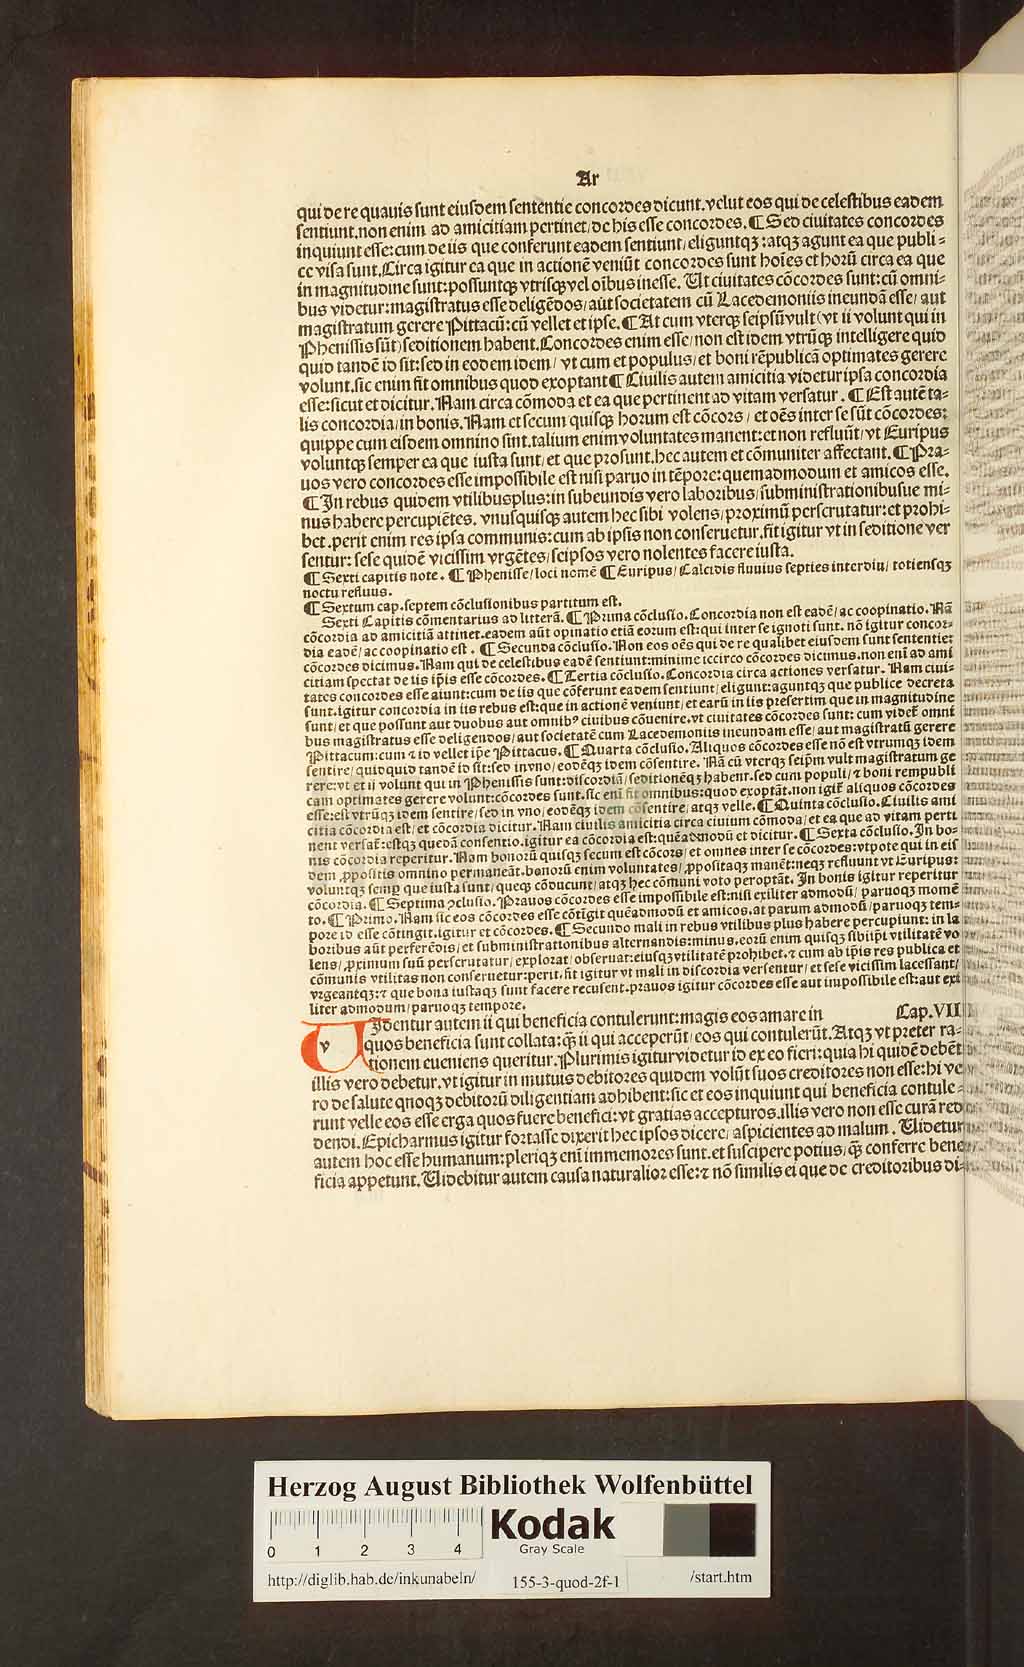 Ar
qui de re quauis sunt eiusdem sententie concordes dicunt.velut eos qui de celestibus eadem
sentiunt.non enim ad amicitiam pertinet/de his esse concordes.¶Sed ciuitates concordes
inquiunt esse:cum de iis que conferunt eadem sentiunt/eliguntqꝫ:atqꝫ agunt ea que publi⸗
ce visa sunt.Circa igitur ea que in actionē veniūt concordes sunt hoīes et horū circa ea que
in magnitudine sunt:possuntqꝫ vtrisqꝫ vel oībus inesse. Ut ciuitates cōcordes sunt:cū omni⸗
bus videtur:magistratus esse deligēdos/aūt societatem cū Lacedemoniis ineundā esse/aut
magistratum gerere Pittacū:cū vellet et ipse.¶At cum vterqꝫ seipsū vult(vt ii volunt qui in
Phenissis sūt)seditionem habent.Concordes enim esse/non est idem vtrūqꝫ intelligere quid
quid tandē id sit:sed in eodem idem/vt cum et populus/et boni rēpublicā optimates gerere
volunt.sic enim fit omnibus quod exoptant¶Ciuilis autem amicitia videtur ipsa concordia
esse:sicut et dicitur.Nam circa cōmoda et ea que pertinent ad vitam versatur.¶Est autē ta⸗
lis concordia/in bonis.Nam et secum quisqꝫ horum est cōcors/et oēs inter se sūt cōcordes:
quippe cum eisdem omnino sint.talium enim voluntates manent:et non refluūt/vt Euripus
voluntqꝫ semper ea que iusta sunt/et que prosunt.hec autem et cōmuniter affectant.¶Pra⸗
uos vero concordes esse impossibile est nisi paruo in tēpore:quemadmodum et amicos esse.
¶In rebus quidem vtilibus plus:in subeundis vero laboribus/subministrationibusue mi⸗
nus habere percupiētes. vnusquisqꝫ autem hec sibi volens/proximū perscrutatur:et prohi⸗
bet.perit enim res ipsa communis:cum ab ipsis non conseruetur.fit igitur vt in seditione ver
sentur:sese quidē vicissim vrgētes/seipsos vero nolentes facere iusta.
¶Sexti capitis note.¶Phenisse/loci nomē¶Euripus/Calcidis fluuius septies interdiu/totiensqꝫ
noctu refluus.
¶Sextum cap.septem cōclusionibus partitum est.
Sexti Capitis cōmentarius ad litterā.¶Prima cōclusio.Concordia non est eadē/ac coopinatio.Nā
cōcordia ad amicitiā attinet.eadem aūt opinatio etiā eorum est:qui inter se ignoti sunt. nō igitur concor⸗
dia eadē/ac coopinatio est.¶Secunda cōclusio.Non eos oēs qui de re qualibet eiusdem sunt sententie:
cōcordes dicimus.Nam qui de celestibus eadē sentiunt:minime iccirco cōcordes dicimus.non enī ad ami
citiam spectat de iis ip̄is esse cōcordes.¶Tertia cōclusio.Concordia circa actiones versatur. Nam ciui⸗
tates concordes esse aiunt:cum de iis que cōferunt eadem sentiunt/eligunt:aguntqꝫ que publice decreta
sunt.igitur concordia in iis rebus est:que in actionē veniunt/et earū in iis presertim que in magnitudine
sunt/et que possunt aut duobus aut omnibꝰ ciuibus cōuenire.vt ciuitates cōcordes sunt: cum videt̄ omni
bus magistratus esse deligendos/aut societatē cum Lacedemoniis ineundam esse/aut magistratū gerere
Pittacum:cum ⁊ id vellet ip̄e Pittacus.¶Quarta cōclusio.Aliquos cōcordes esse nō est vtrumqꝫ idem
sentire/quidquid tandē id sit:sed in vno/eodēqꝫ idem cōsentire. Nā cū vterqꝫ seip̄m vult magistratum ge
rere:vt et ii volunt qui in Phenissis sunt:discordiā/seditionēqꝫ habent.sed cum populi/⁊ boni rempubli
cam optimates gerere volunt:cōcordes sunt.sic enī fit omnibus:quod exoptāt.non igit̄ aliquos cōcordes
esse:est vtrūqꝫ idem sentire/sed in vno/eodēqꝫ idem cōsentire/atqꝫ velle.¶Quinta cōclusio.Ciuilis ami
citia cōcordia est/et cōcordia dicitur.Nam ciuilis amicitia circa ciuium cōmoda/et ea que ad vitam perti
nent versat̄:estqꝫ quedā consentio.igitur ea cōcordia est:quēadmodū et dicitur.¶Sexta cōclusio.In bo⸗
nis cōcordia reperitur.Nam bonorū quisqꝫ secum est cōcors/et omnes inter se cōcordes:vtpote qui in eis
dem ꝓpositis omnino permaneāt.bonorū enim voluntates/ꝓpositaqꝫ manēt:neqꝫ refluunt vt Euripus:
voluntqꝫ semꝑ que iusta sunt/queqꝫ cōducunt/atqꝫ hec cōmuni voto peroptāt. In bonis igitur reperitur
cōcordia.¶Septima ↄclusio.Prauos cōcordes esse impossibile est:nisi exiliter admodū/paruoqꝫ momē
to.¶Primo.Nam sic eos cōcordes esse cōtīgit quēadmodū et amicos.at parum admodū/paruoqꝫ tem⸗
pore id esse cōtingit.igitur et cōcordes.¶Secundo mali in rebus vtilibus plus habere percupiunt: in la
boribus aūt perferēdis/et subministrationibus alternandis:minus.eorū enim quisqꝫ sibiip̄i vtilitatē vo
lens/ꝓximum suū perscrutatur/explorat/obseruat:eiusqꝫ vtilitatē prohibet.⁊ cum ab ip̄is res publica et
cōmunis vtilitas non conseruetur:perit.fit igitur vt mali in discordia versentur/et sese vicissim lacessant/
vrgeantqꝫ:⁊ que bona iustaqꝫ sunt facere recusent.prauos igitur cōcordes esse aut impossibile est:aut exi
liter admodum/paruoqꝫ tempore.
Uidentur autem ii qui beneficia contulerunt:magis eos amare in Cap.VII
quos beneficia sunt collata:qꝫ̄ ii qui acceperūt/eos qui contulerūt.Atqꝫ vt preter ra⸗
tionem eueniens queritur.Plurimis igitur videtur id ex eo fieri:quia hi quidē debēt
illis vero debetur.vt igitur in mutuis debitores quidem volūt suos creditores non esse:hi ve
ro de salute qnoqꝫ debitorū diligentiam adhibent:sic et eos inquiunt qui beneficia contule⸗
runt velle eos esse erga quos fuere benefici:vt gratias accepturos.illis vero non esse curā red
dendi.Epicharmus igitur fortasse dixerit hec ipsos dicere/aspicientes ad malum. Uidetur
autem hoc esse humanum:pleriqꝫ enī immemores sunt.et suscipere potius/qꝫ̄ conferre bene
ficia appetunt.Uidebitur autem causa naturalior esse:⁊ nō similis ei que de creditoribus di⸗
Herzog August Bibliothek Wolfenbüttel
Kodak
Gray Scale
0 1 2 3 4
http://diglib.hab.de/inkunabeln/ 155-3-quod-2f-1 /start.htm